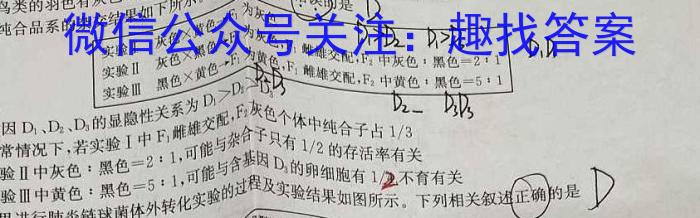 鸟类的羽色有灰
纯合品系的 结果如下所示。
D
微信公众号关注：趣找答案
实验Ⅰ 灰色×
实验Ⅱ 灰色×黑色 F₁ 雌雄交配,F₂ 中灰色：黑色=2：1
实验Ⅲ 黑色×黄色,F₁ 为黄色,F₁ 雌雄交配,F₂ 中黄色：黑色=5：1
D₂
D₂_ D₃D₃
因 D₁、D₂、D₃的显隐性关系为 D₁>D₂>
常情况下,若实验Ⅰ中 F₁ 雌雄交配,F₂灰色个体中纯合子占 1/3
验Ⅱ中灰色：黑色=2：1,可能与杂合子只有 1/2 的存活率有关
验Ⅲ中黄色：黑色=5：1,可能与含基因 D₃的卵细胞有 1/2不育有关
进行肺炎链球菌体外转化实验的过程及实验结果如图所示。下列相关叙述正确的是 D